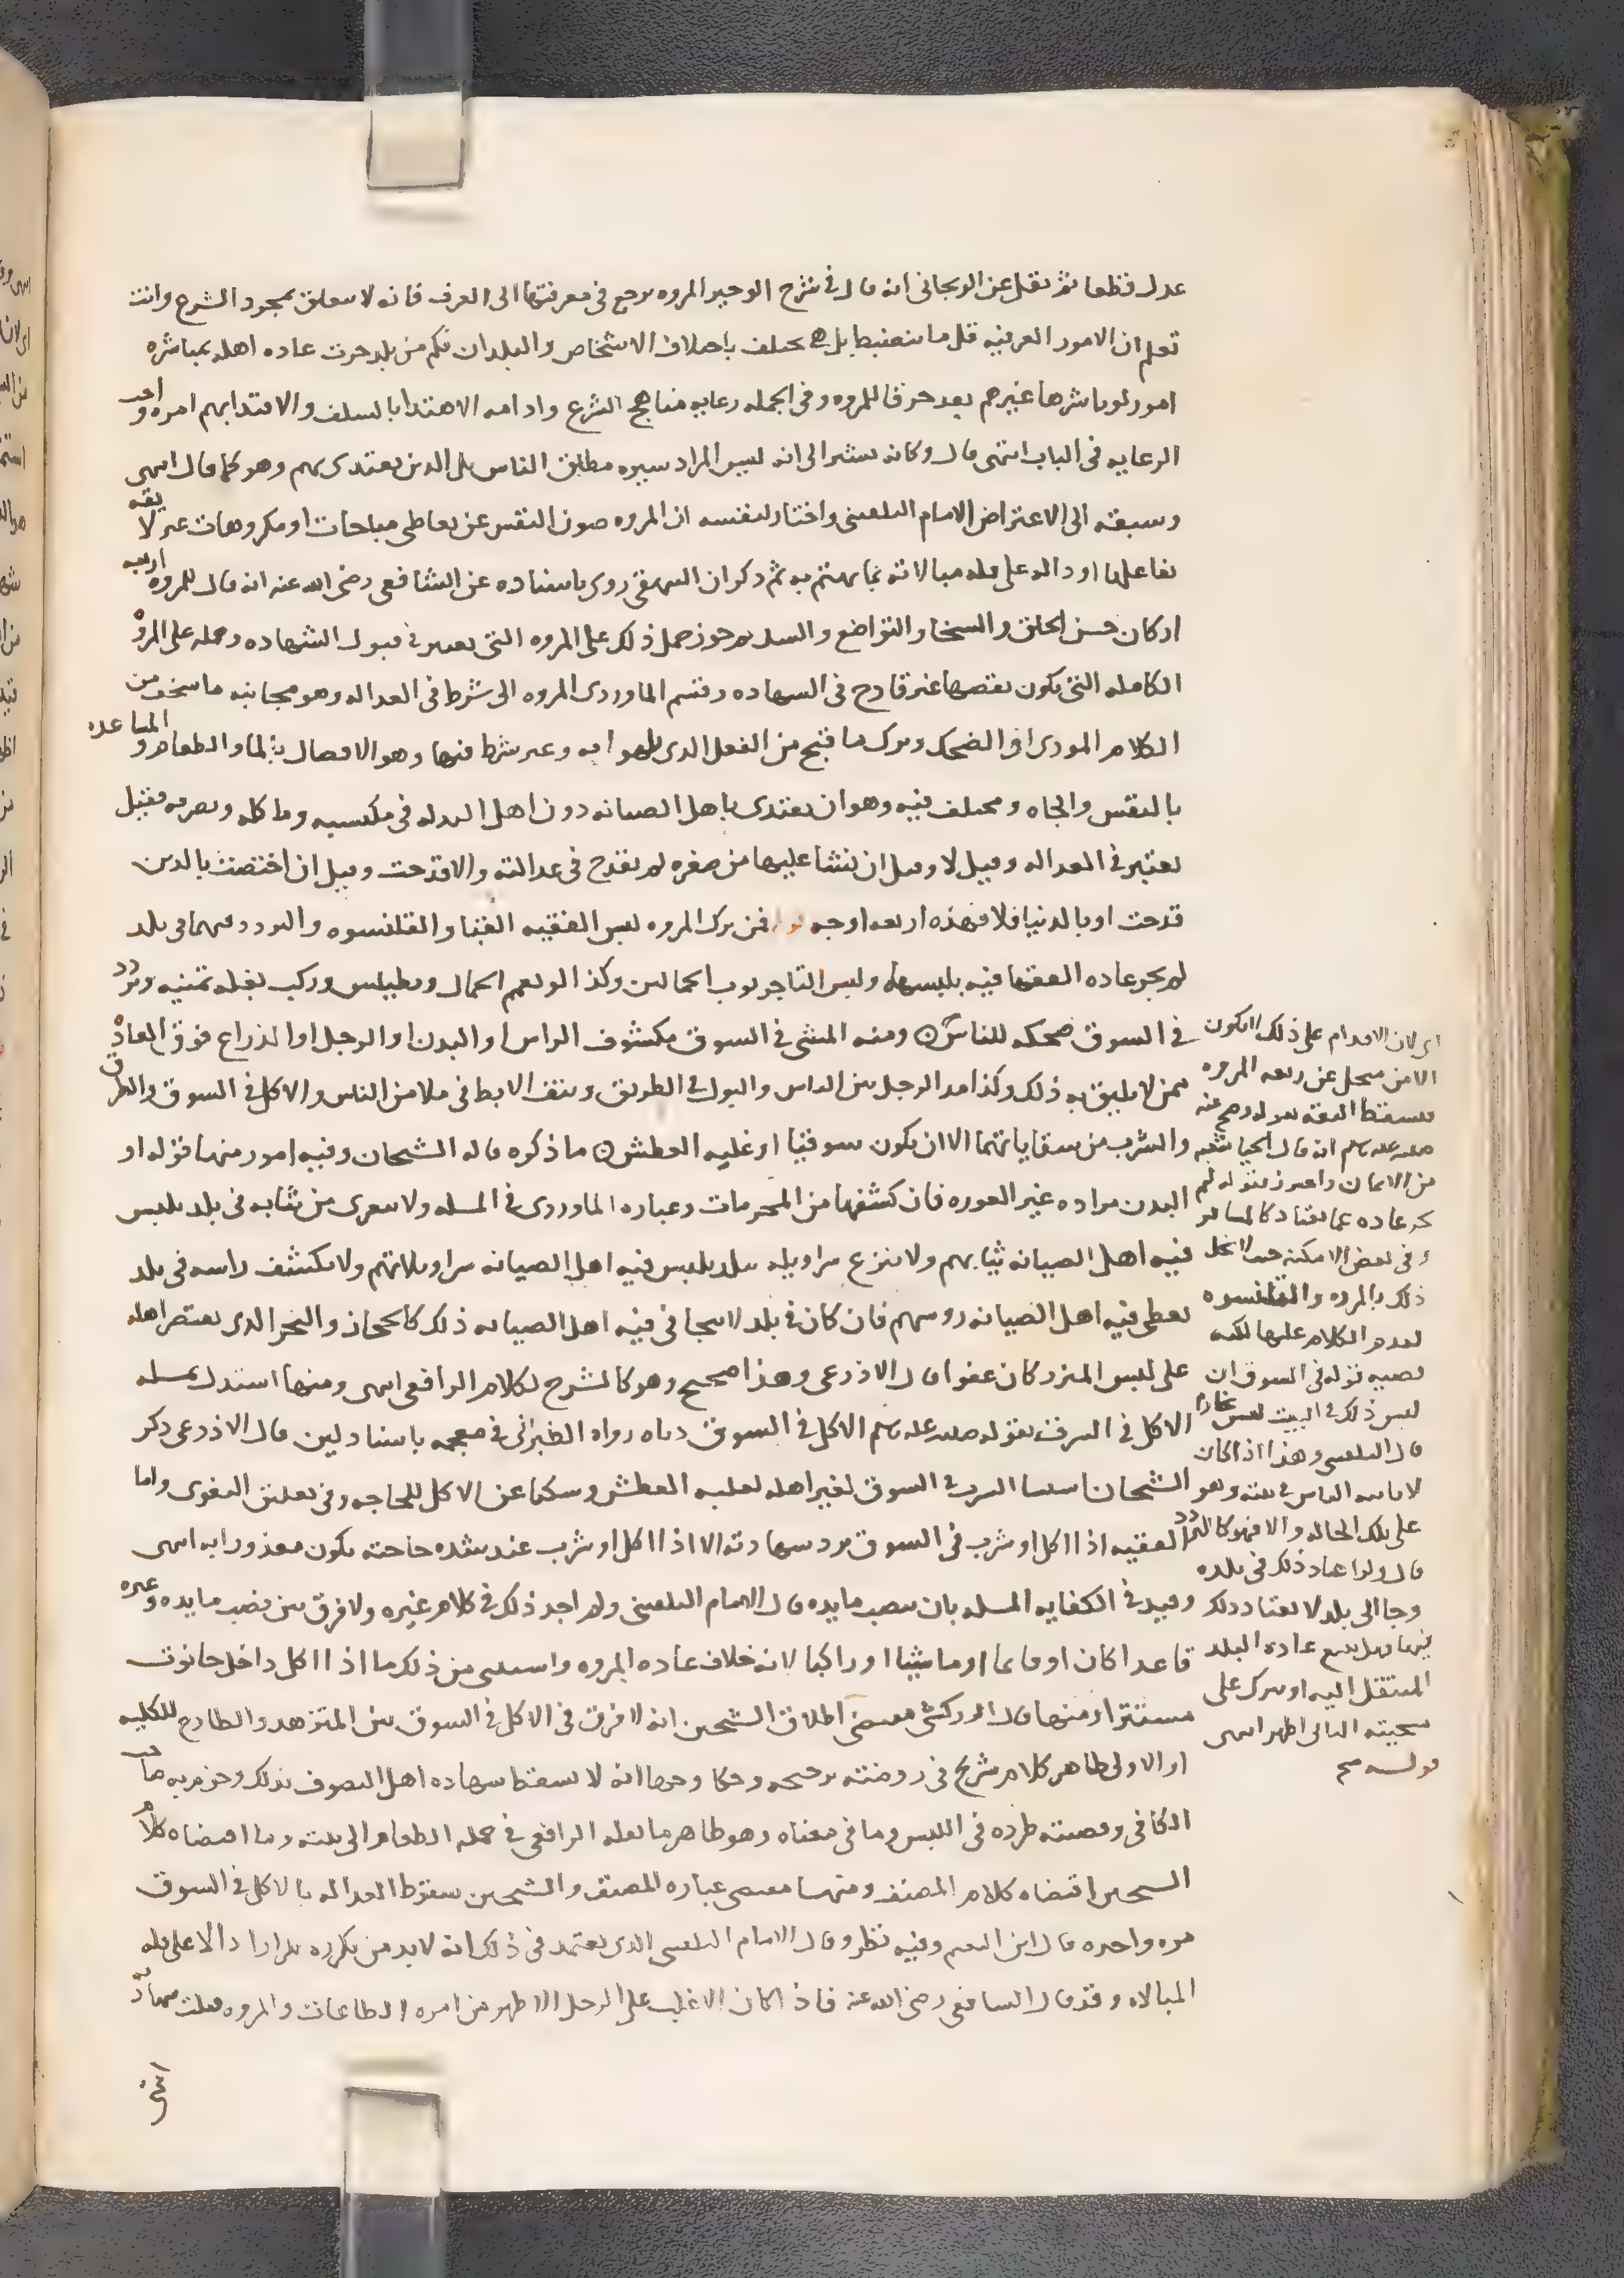 عدل قطعا ثم نقل عن الويجاني انه قال في شرح الوجيز المروه يرجع في معرفتها الى العرف فانه لا تتعلق بمجرد الشرع وانت
تعلم ان الامور العرفيه قل ما تنضبط بل هي تختلف باختلاف الاشخاص والبلدان فكم من بلد جرت عاده اهله بمباشره
امور لو باشرها غيرهم يعد خرقا للمروه وفي الجمله رعايه مناهج الشرع وادامه الاهتدا بالسلف والاقتدا بهم امره واجب
الرعايه في الباب انتهى قال وكانه يشير الى انه ليس المراد سيره مطلق الناس بل الذين يقتدى بهم وهو كما قال انتهى
وسبقه الى الاعتراض الامام البلقيني واختار لنفسه ان المروه صون النفس عن تعاطي مباحات او مكروهات غير لايقه
بفاعلها او داله على قله مبالاته بما يهتم به ثم ذكر ان البيهقي روى باسناده عن الشافعي رضي الله عنه انه قال للمروه اربعه
اركان حسن الخلق والسخا والتواضع والنسك يجوز حمل ذلك على المروه التي تعتبر في قبول الشهاده وحمله على المروه
الكامله التي يكون نقصها غير قادح في الشهاده وقسم الماوردي المروه الى شرط في العداله وهو مجانبه ما سخف من
الكلام الموذي او الضحك وترك ما قبح من الفعل الذي يلهوا به وغير شرط فيها وهو الافضال بالما والطعام والمساعده
بالنفس والجاه ومختلف فيه وهو ان يقتدي باهل الصيانه دون اهل البذله في ملبسه وماكله وتصرفه فقيل
يعتبر في العداله وقيل لا وقيل ان نشا عليها من صغره لم يقدح في عدالته والا قدحت وقيل ان اختصت بالدين
قدحت او بالدنيا فلا فهذه اربعه اوجه فمن ترك المروه لبس الفقيه القبا والقلنسوه والتردد فيهما في بلد
لم تجر عاده الفقها فيه بلبسها ولبس التاجر ثوب الحمالين وكذا لو تعمم الحمال وتطيلس وركب بغله ثمينه وتردد
في السوق ضحكه للناس ومنه المشي في السوق مكشوف الراس او البدن او الرجل او الذراع فوق العاده
ممن لا يليق به ذلك وكذا مد الرجل بين الناس والبول في الطريق ونتف الابط في ملا من الناس والاكل في السوق والطرق
والشرب من سقاياتهما الا ان يكون سوقيا او غلبه العطش ما ذكره قاله الشيخان وفيه امور منها قوله او
البدن مراده غير العوره فان كشفها من المحرمات وعباره الماوردي في المسله ولا يعرى من ثيابه في بلد يلبس
فيه اهل الصيانه ثيابهم ولا ينزع سراويله ببلد يلبس فيه اهل الصيانه سراويلاتهم ولا يكشف راسه في بلد
يغطي فيه اهل الصيانه روسهم فان كان في بلد لا يتجافى فيه اهل الصيانه ذلك كالحجاز والبحر الذي يقتصر اهله
على لبس المئزر كان عفوا قال الاذرعي وهذا صحيح وهو كالشرح لكلام الرافعي انتهى ومنها استدل لمسله
الاكل في السوق بقوله صلى الله عليه وسلم الاكل في السوق دناه رواه الطبراني في معجمه باسناد لين قال الاذرعي ذكر
الشيخان استثنا الشرب في السوق لغير اهله لغلبه العطش وسكتا عن الاكل للحاجه وفي تعليق البغوي واما
الفقيه اذا اكل او شرب في السوق ترد شهادته الا اذا اكل او شرب عند شده حاجته يكون معذورا به انتهى
وقيد في الكفايه المسله بان ينصب مايده قال الامام البلقيني ولم اجد ذلك في كلام غيره ولا فرق بين نصب مايده وغيره
قاعدا كان او قائما او ماشيا او راكبا لانه خلاف عاده المروه واستثنى من ذلك ما اذا اكل داخل حانوت
مستترا ومنها قال الزركشي مقتضى اطلاق الشيخين انه لا فرق في الاكل في السوق بين المتزهد والطارح للكلفه
او الاول ظاهر كلام شريح في روضته ترجيحه وحكا وجها انه لا تسقط شهاده اهل التصوف بذلك وجزم به صاحب
الكافي وقضيته طرده في اللبس وما في معناه وهو ظاهر ما نقله الرافعي في حمله الطعام الى بيته وما اقتضاه كلام
الشيخين اقتضاه كلام المصنف ومنها مقتضى عباره المصنف والشيخين سقوط العداله بالاكل في السوق
مره واحده قال ابن النقيب وفيه نظر وقال الامام البلقيني الذي يعتمد في ذلك انه لا بد من تكرره تكرارا دالا على قله
المبالاه وقد قال الشافعي رضي الله عنه فاذا كان الاغلب على الرجل الاظهر من امره الطاعات والمروه قبلت شهادته
انتهى
اي لان الاقدام على ذلك لا يكون
الا من منحل عن ربقه المروه
فسقط الثقه بقوله وصح عنه
صلى الله عليه وسلم انه قال الحيا شعبه
من الايمان واحترز بقوله لم
تجر عاده عما يعتاد كالمسافر
وفي بعض الامكنه حيث لا يخل
ذلك بالمروه والقلنسوه
تقدم الكلام عليها لكنه
قضيه قوله في السوق ان
لبس ذلك في البيت ليس
قال البلقيني وهذا اذا كان
لا ياتيه الناس في بيته وهو
على تلك الحاله والا فهو كالتردد
قال ولو اعتاد ذلك في بلده
وجا الى بلد لا يعتاد ذلك
فيها فهل يتبع عاده البلد
المنتقل اليه او يترك على
سجيته الثاني اظهر انتهى